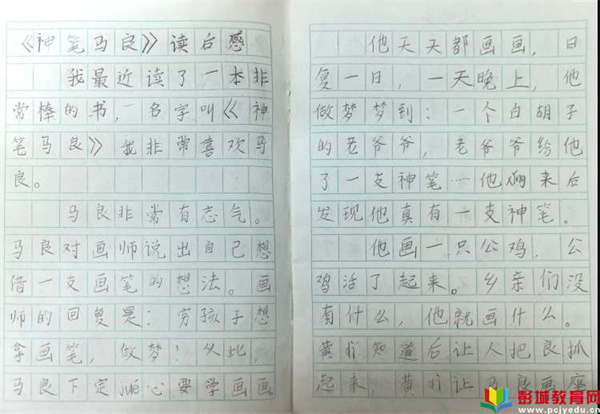 《神笔马良》读后感
我最近读了一本非
常棒的书，名字叫《神
笔马良》我非常喜欢马
良。
马良非常有志气。
马良对画师说出自己想
借一支画笔的想法。画
师的回复是：穷孩子想
拿画笔，做梦！从此，
马良下定决心，要学画画
他天天都画画，日
复一日，一天晚上，他
做梦梦到：一个白胡子
的老爷爷，老爷爷给他
了一支神笔……他醒来后
发现他真有一支神笔。
他画一只公鸡，公
鸡活了起来。乡亲们没
有什么，他就画什么。
知道后让人把良抓
起来，让马良画座
彭城教育网
www.pcjyedu.cn